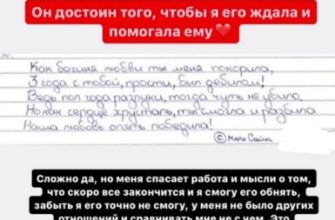 Он достоин того, чтобы я его ждала и
помогала ему❤️
Как богиня любви ты меня покорила,
3 года с тобой, прости, был дебилом!
Ведь пол года разлуки, тогда чуть не убило.
Но как сердце хрусталь, ты смогла и разбила
Наша любовь опять победила!
© Марк
Сложно да, но меня спасает работа и мысли о том,
что скоро все закончится и я смогу его обнять,
забыть я его точно не смогу, у меня не было других
отношений и сравнивать мне не с чем. Это